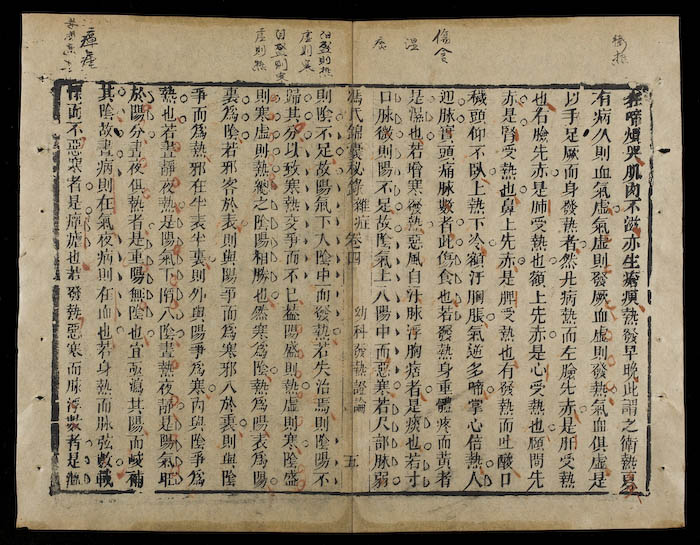 狂啼煩哭肌肉不欲亦生瘡瘓熱發早晚此謂之衛熱
有病久則血氣虛氣虛則發厥血虛則發熱氣血俱虛是
以手足厥而身發熱者然凡病熱而左臉先赤是肝受熱
也右臉先赤是肺受熱也額上先赤是心受熱也頤間先
赤是腎受熱也鼻上先赤是脾受熱也有發熱而吐酸口
穢頭仰不臥上熱下冷額汗胸脹氣逆多啼掌心倍熱人
迎脈實頭痛脈數者此傷食也若發熱身重體疼而黃者
是濕也若增寒發熱惡風自汗脈浮胸痞者是痰也若寸
口脈微則陽不足故陰氣上入陽中而惡寒若尺部脈弱
馮氏錦囊秘錄雜症卷四　幼科發熱證論　五
則陰不足故陽氣下入陰中而發熱若失治焉則陰陽不
歸其分以致寒熱交爭而不已蓋陽盛則熱虛則寒陰盛
則寒虛則熱總之陰陽相勝也然寒爲陰熱爲陽表爲陽
裏爲陰若邪客於表則與陽爭而爲寒邪入於裏則與陰
爭而爲熱邪在半表半裏則外與陽爭爲寒內與陰爭爲
熱也若晝靜夜熱是陽氣下陷入陰晝熱夜靜是陽氣旺
於陽分晝夜俱熱者是重陽無陰也宜亟瀉其陽而峻補
其陰故晝病則在氣夜病則在血也若身熱而脈弦數戰
慄而不惡寒者是瘴瘧也若發熱惡寒而脈浮數者是溫
傷食
溫
痰
陽盛則熱
虛則寒
陰盛則寒
虛則熱
瘴瘧